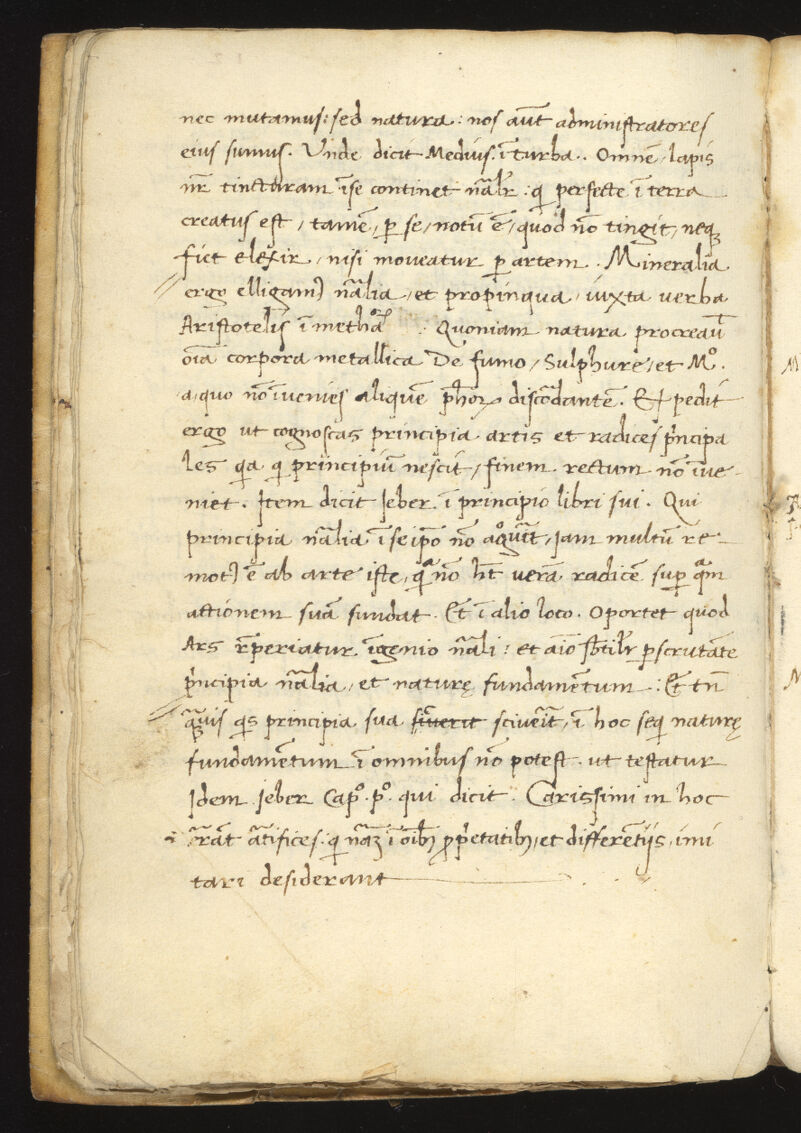 nec mutamus: sed natura: nos aūt administratores
eius sumus. Vnde dicit Medius. ī turba. Omnē, lapis
nr̄ tincturam īse continet nālr̄: qi perfecte ī terra
creatus est, tamē, ꝑ se, notū ē, quod nō tingit, neqꝫ
fiet elexir, nisi moveatur ꝑ artem. Mineralia
ergo elligam) nālia, et propinqua, iuxta verba
Aristotelis ī metha. Quoniam natura procreav̄t
oīa corpora metallica De fumo, Sulphure, et Mº.
a, quo nō īuenies aliquē ꝓhoꝝ discōdantē. Expedit
ergo ut cognoscas principia artis et radices p̄ncipa
les qa qi principiū nescit, finem rectum nō īue-
niet. Item dicit Jeber ī principio libri sui. Qui
principia nālia ī seipō nō Iam multū re-
mot) ē ab arte iste, qa nō h̄t verā radicē suꝑ qām
actionem suā fundat. Et ī alio loco. Oportet quod
Ars r̄periatur īgenio nāli: et aīo sbtilr̄ ꝑscrutāte
p̄ncipia nālia, et naturę fundamētum: Et tn̄
qāuis qis principia sua sciverīt, ī hoc seqi naturę
fundamētum ī omnibus nō potest. ut testatur
Idem Jeber Capº. pº. qui dicit. Carissimi in hoc
r̄rāt ātifices. qi nāꝫ ī oībꝫ ꝓp̄etatibꝫ, et differētijs, imi
tari desiderant